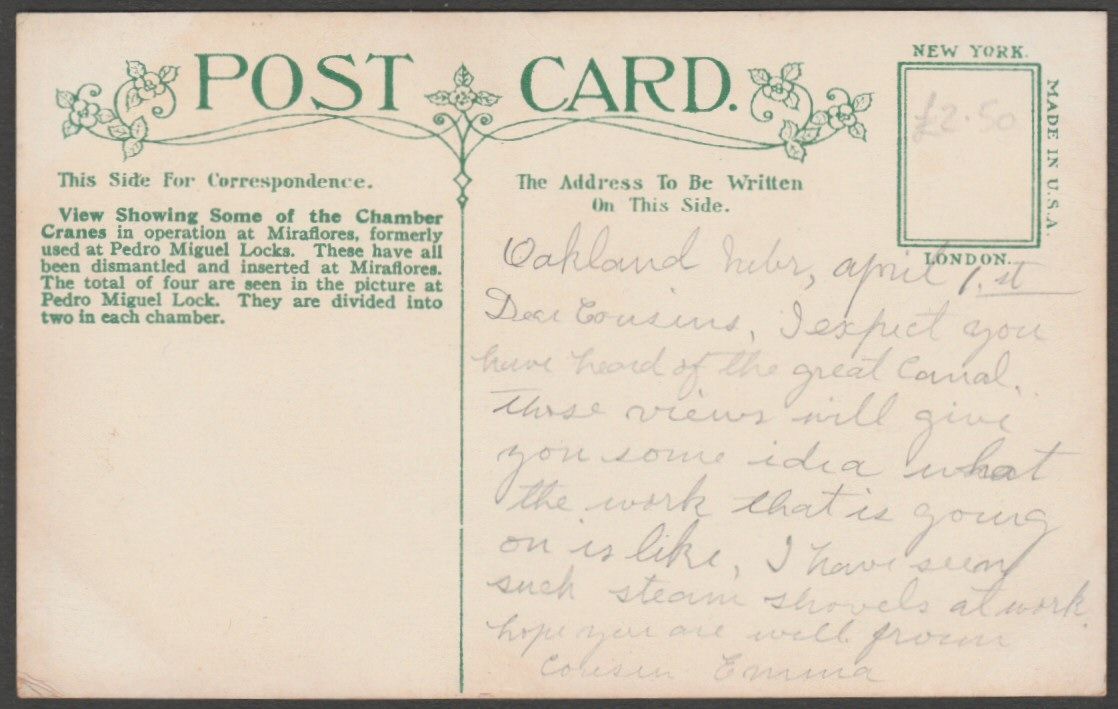 POST CARD.
NEW YORK.
MADE IN U.S.A.
£2.50
LONDON.
This Side For Correspondence.
The Address To Be Written
On This Side.
View Showing Some of the Chamber
Cranes in operation at Miraflores, formerly
used at Pedro Miguel Locks. These have all
been dismantled and inserted at Miraflores.
The total of four are seen in the picture at
Pedro Miguel Lock. They are divided into
two in each chamber.
Oakland Nebr, april 1.st
Dear Cousins, I expect you
have heard of the great Canal.
those views will give
you some idea what
the work that is going
on is like, I have seen
such steam shovels at work.
hope you are well from
Cousin Emma